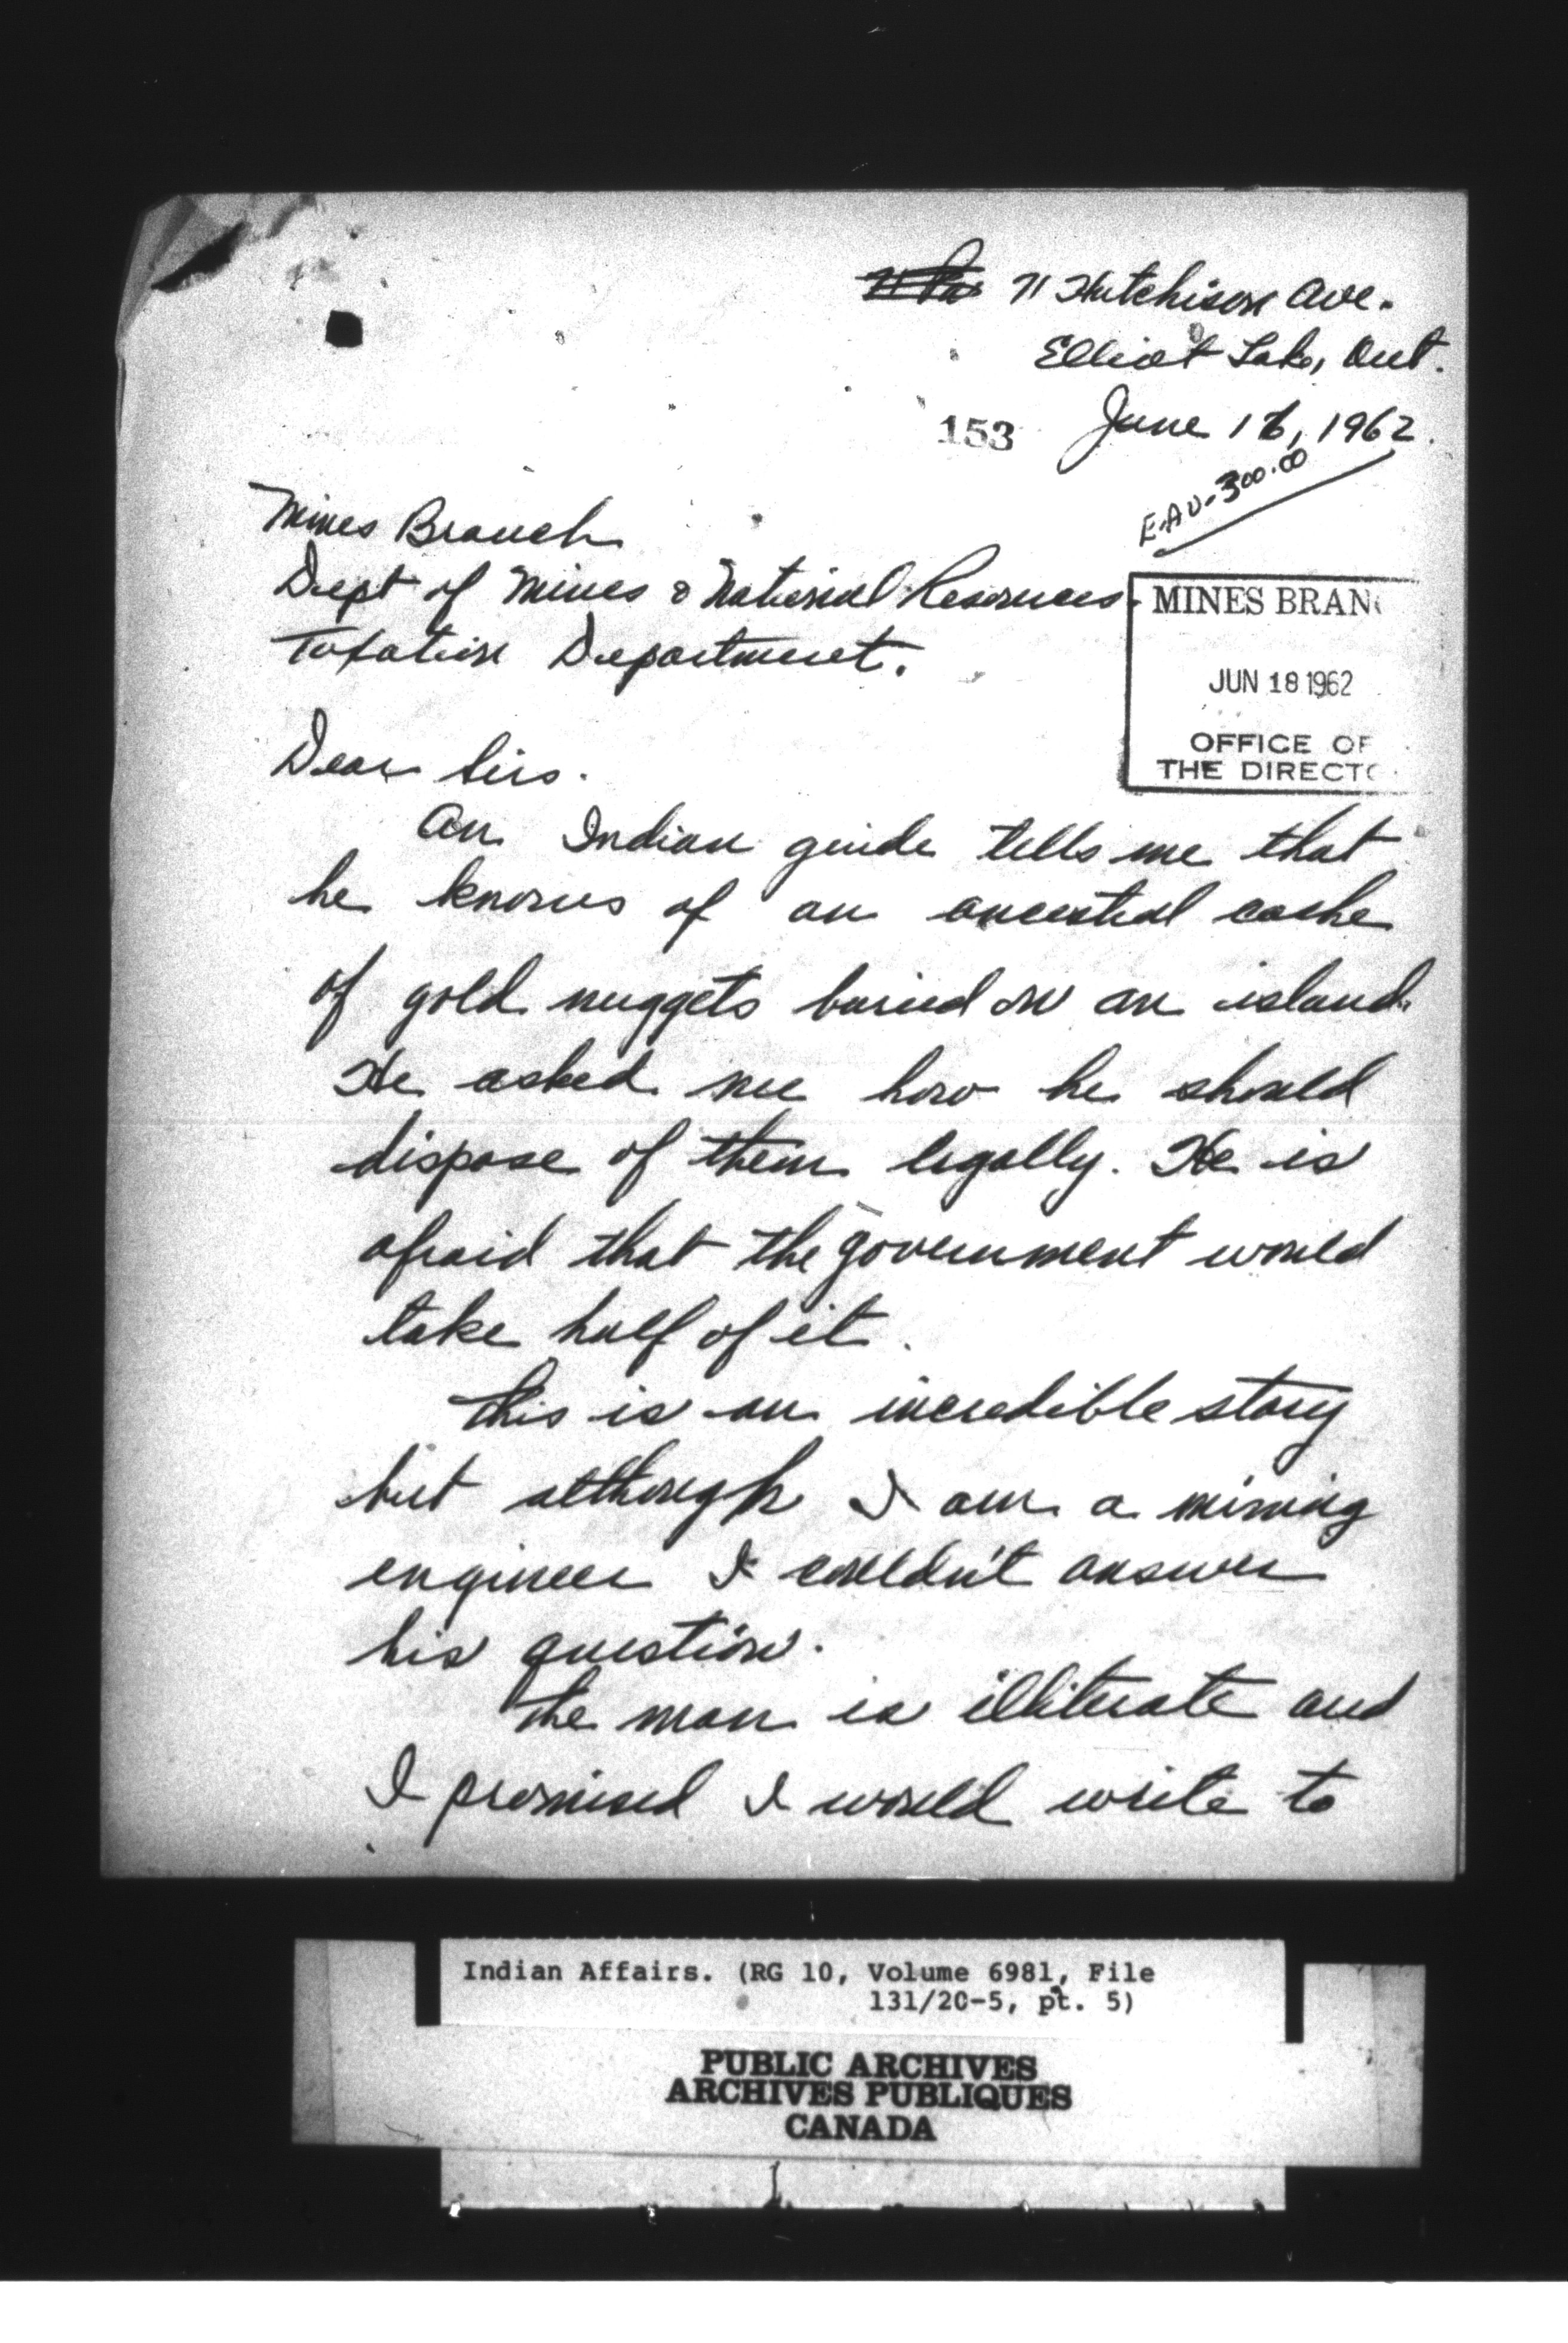 71 Hutchison Ave.
Elliot Lake, Ont.
153 June 16, 1962.
E.A.U. 300.00
Mines Branch
Dept of Mines & National Resources
Taxation Department.
MINES BRAN
JUN 18 1962
OFFICE OF
THE DIRECTO
Dear Sirs.
An Indian guide tells me that
he knows of an ancestral cache
of gold nuggets buried on an island.
He asked me how he should
dispose of them legally. He is
afraid that the government would
take half of it.
This is an incredible story
but although I am a mining
engineer I couldn't answer
his question.
The man is illiterate and
I promised I would write to
Indian Affairs. (RG 10, Volume 6981, File
131/20-5, pt. 5)
PUBLIC ARCHIVES
ARCHIVES PUBLIQUES
CANADA